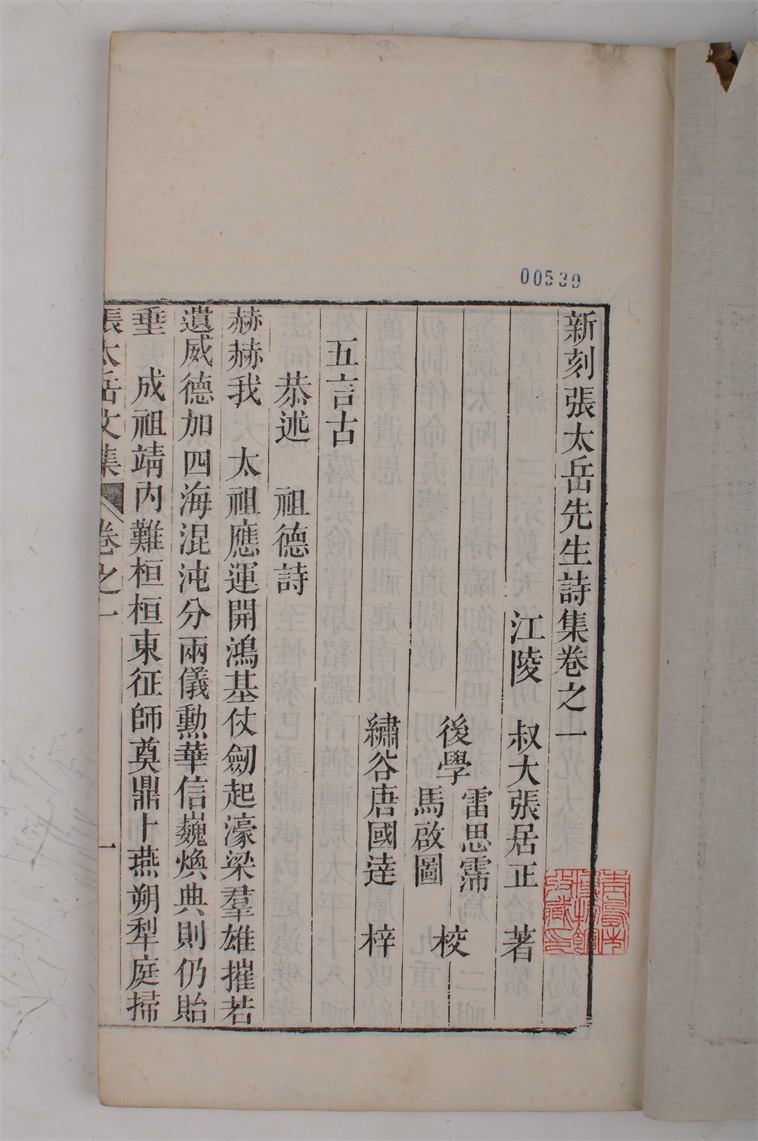 00539
新刻張太岳先生詩集卷之一
江陵 叔大張居正 著
後學 雷思霈 馬啟圖 校
繡谷唐國達 梓
五言古
恭述 祖德詩
赫赫我 太祖應運開鴻基仗劒起濠梁羣雄摧若
遺威德加四海混沌分兩儀勳華信巍煥典則仍貽
垂 成祖靖內難桓桓東征師奠鼎卜燕朔犁庭掃
張太岳文集 卷之一 一